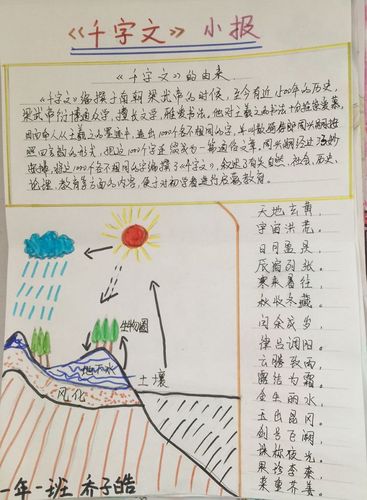 《千字文》小报
《千字文》的由来
《千字文》编撰于南朝梁武帝的时候，至今有近1500年的历史，
梁武帝衍博通众学，擅长文学，雅爱书法，他对王羲之的书法十分推崇喜爱，
因而命人从王羲之的墨迹中，选出1000个各不相同的字，并叫散骑侍郎周兴嗣按
照四言韵的形式，把这1000个字连缀成为一篇通俗文章，周兴嗣经过
将这1000个各不相同的字编撰了《千字文》，叙述了有关自然、社会、历史、
伦理、教育等方面的内容，便于对初学者进行启蒙教育。
天地玄黄，
宇宙洪荒。
日月盈昃，
辰宿列张。
寒来暑往，
秋收冬藏。
闰余成岁，
律吕调阳。
云腾致雨，
露结为霜。
金生丽水，
玉出昆冈。
剑号巨阙，
珠称夜光。
果珍李柰，
菜重芥姜
生物圈
地下水
土壤
风化
一年一班 乔子皓